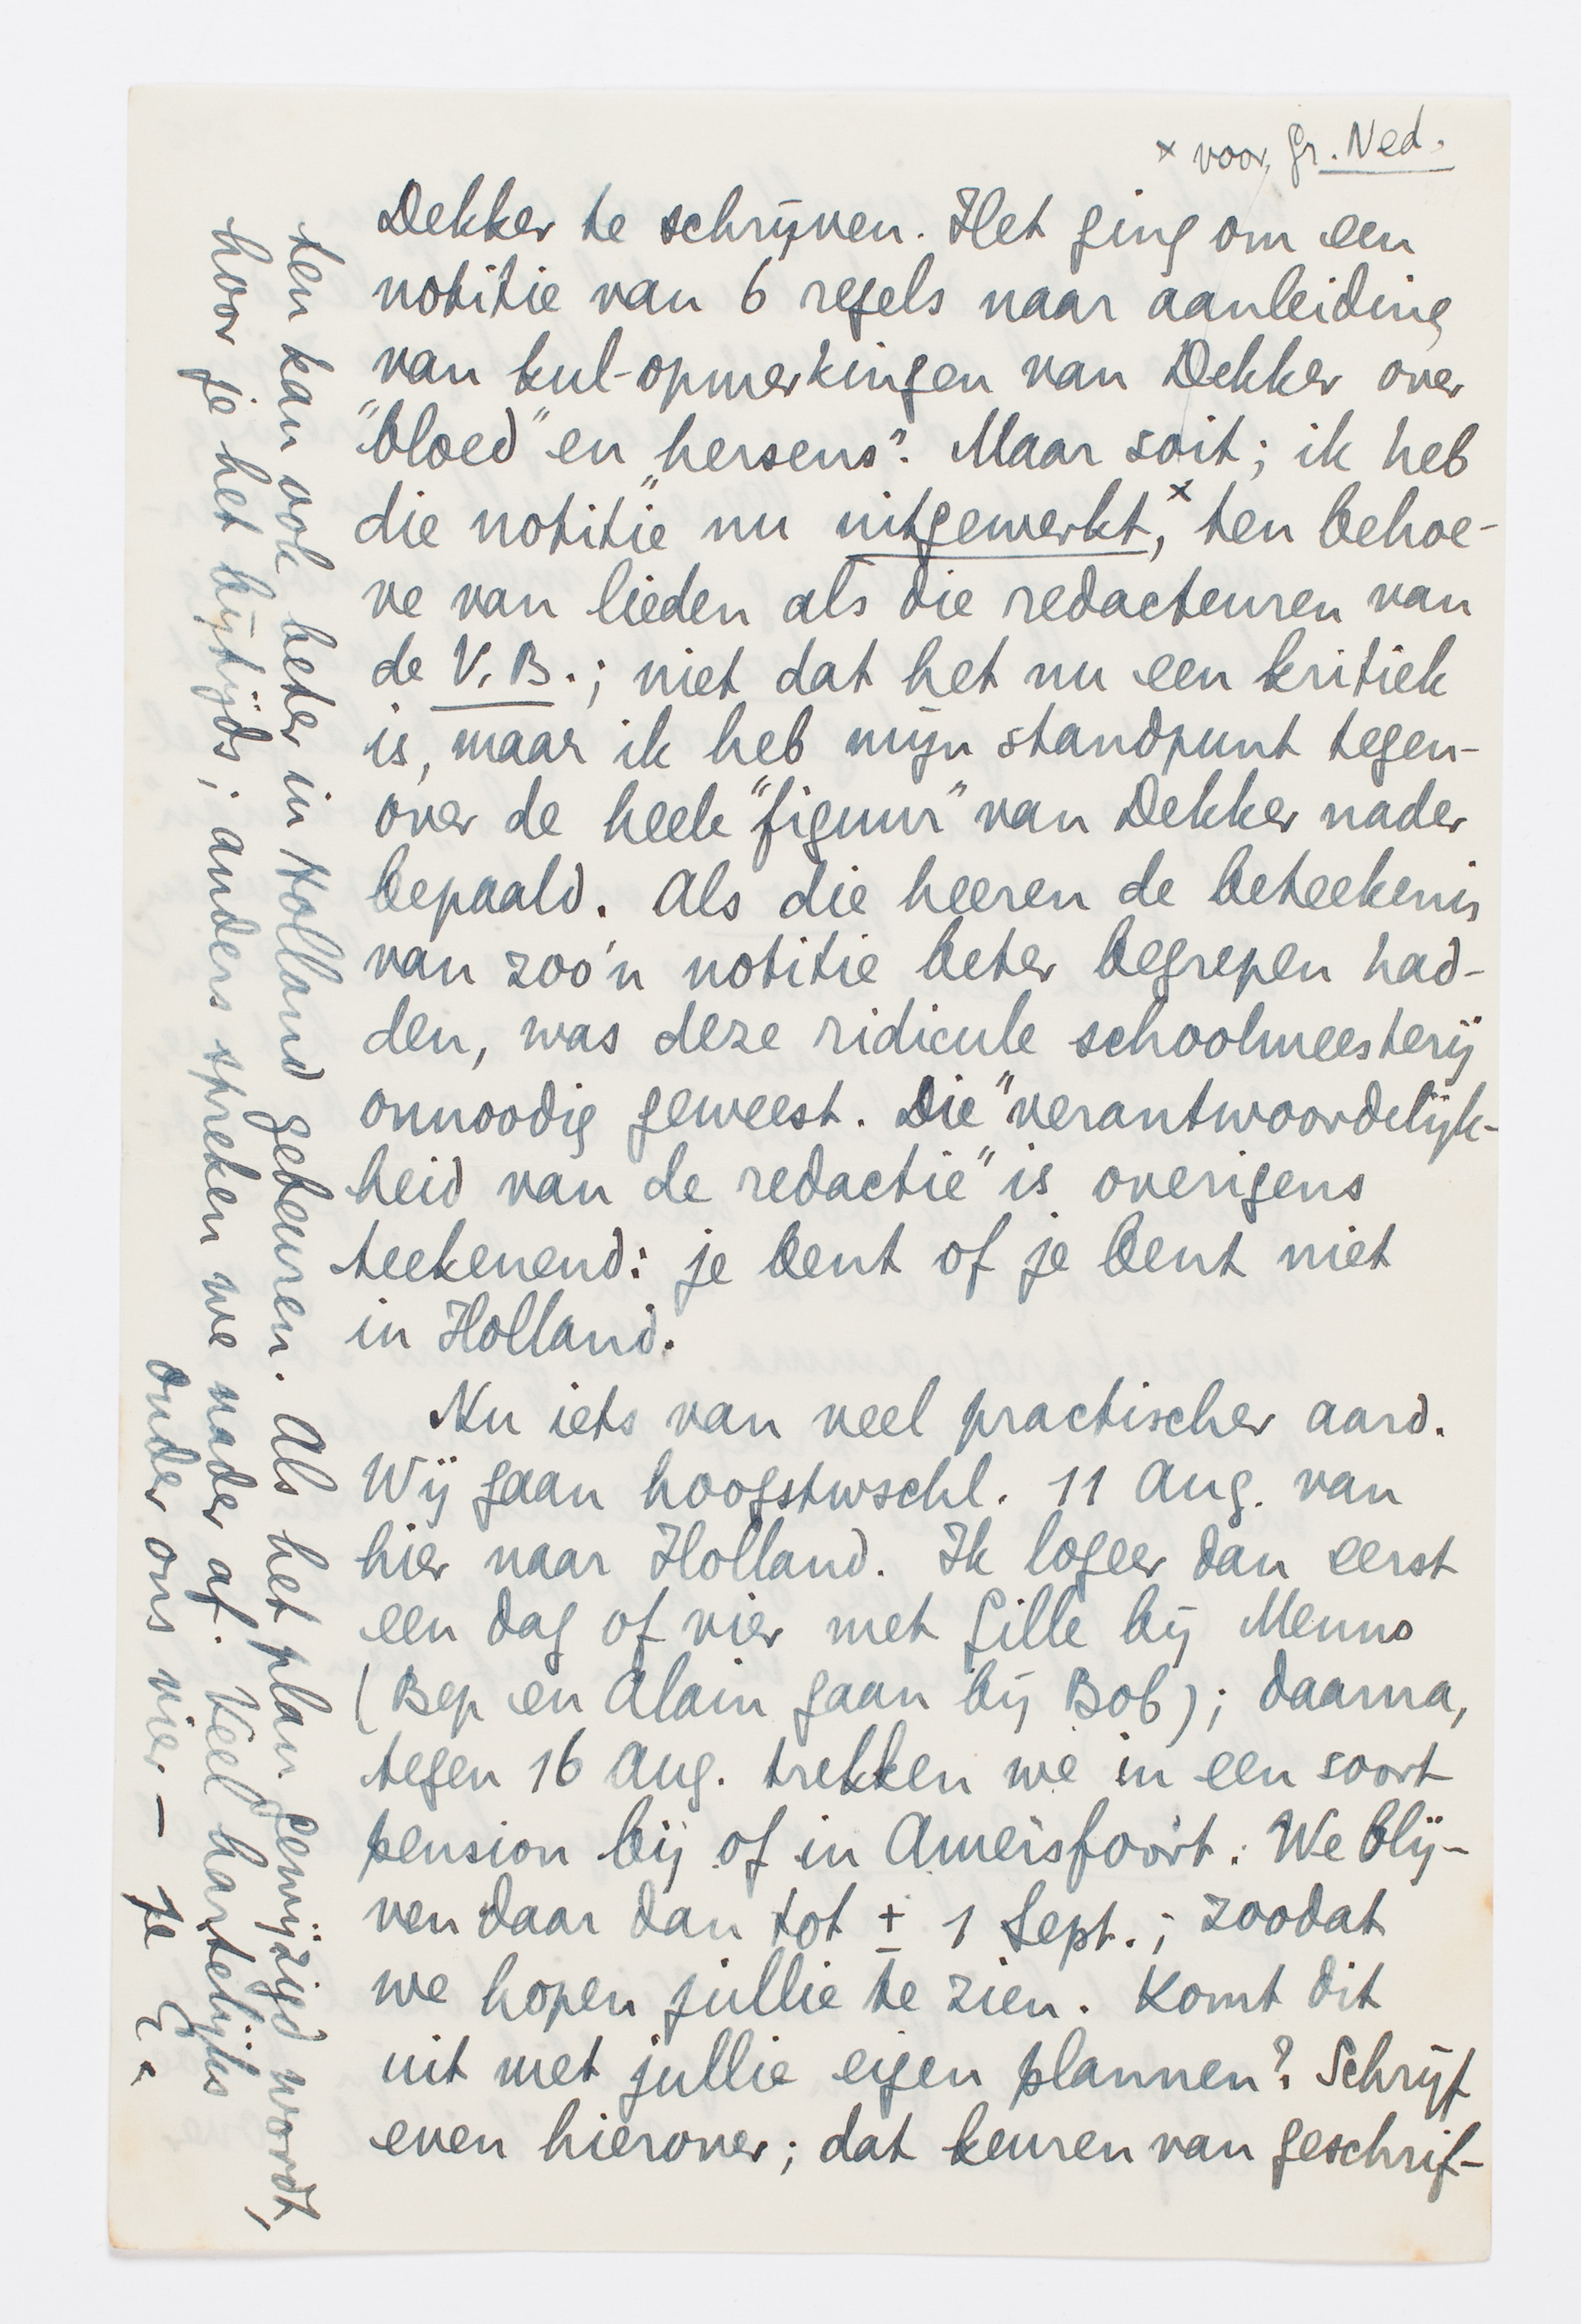 x voor Gr. Ned.
Dekker te schrijven. Het ging om een
notitie van 6 regels naar aanleiding
van kul-opmerkingen van Dekker over
"bloed" en "hersens". Maar soit; ik heb
die notitie nu uitgewerkt,x ten behoe-
ve van lieden als die redacteuren van
de V.B.; niet dat het nu een kritiek
is, maar ik heb mijn standpunt tegen-
over de heele "figuur" van Dekker nader
bepaald. Als die heeren de beteekenis
van zoo'n notitie beter begrepen had-
den, was deze ridicule schoolmeesterij
onnoodig geweest. Die "verantwoordelijk-
heid van de redactie" is overigens
teekenend: je bent of je bent niet
in Holland.
Nu iets van veel practischer aard.
Wij gaan hoogstwschl. 11 Aug. van
hier naar Holland. Ik logeer dan eerst
een dag of vier met Gille bij Menno
(Bep en Alain gaan bij Bob); daarna,
tegen 16 Aug. trekken we in een soort
pension bij of in Amersfoort. We blij-
ven daar dan tot ± 1 Sept.; zoodat
we hopen jullie te zien. Komt dit
uit met jullie eigen plannen? Schrijf
even hierover; dat keuren van geschrif-
ten kan ook beter in Holland gebeuren. Als het plan gewijzigd wordt,
hoor je het bijtijds; anders spreken we nader af. Veel hartelijks
onder ons vier — je E.